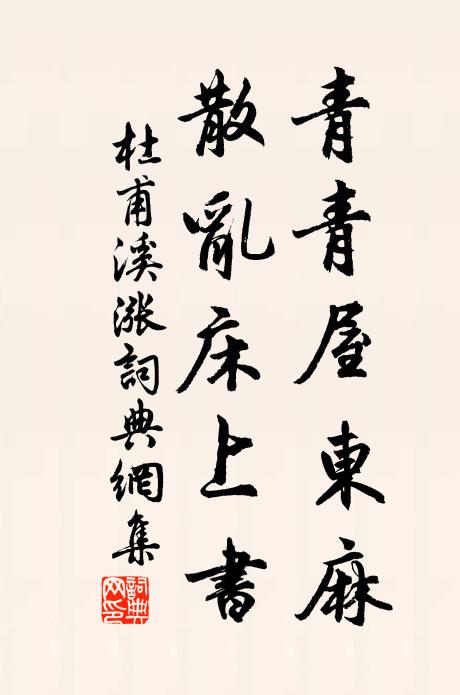 青青屋東麻
散亂床上書
杜甫溪漲詞典網集
詞典網印